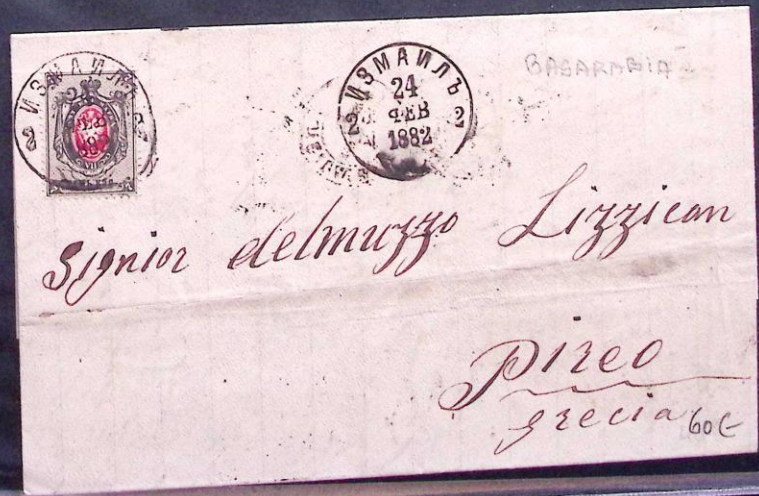 ИЗМАИЛЪ
ИЗМАИЛЪ
24
ФЕВ
1882
2 2
BASARABIA
Signior delmuzzo Lizzican
Pireo
grecia
60€